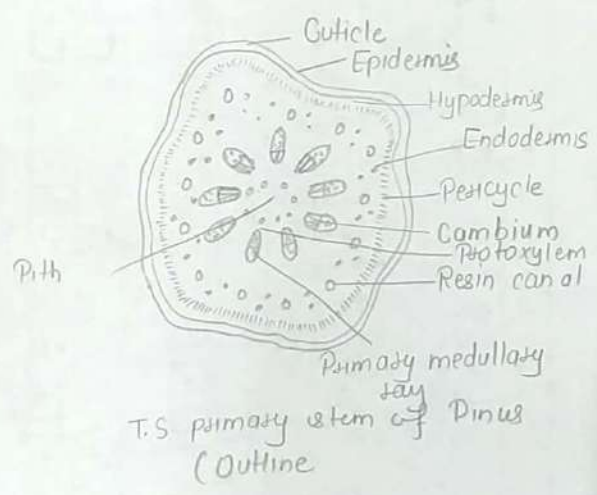 Cuticle
Epidermis
Hypodermis
Endodermis
Pericycle
Cambium
Protoxylem
Resin canal
Pith
Primary medullary
ray
T.S primary stem of Pinus
(Outline